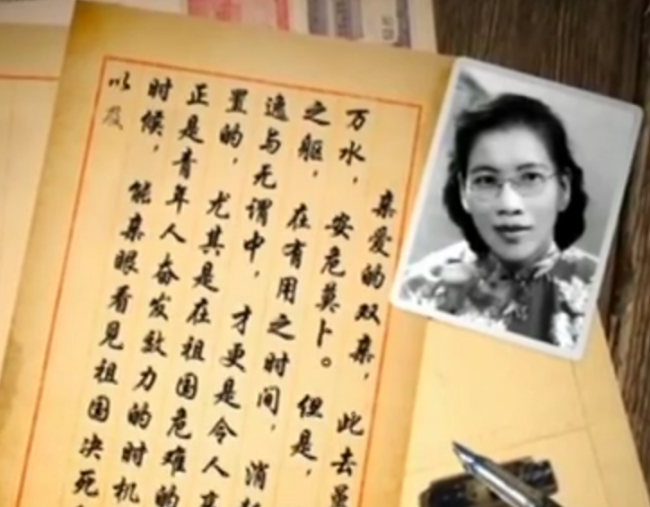 亲爱的双亲，此去虽
万水，安危莫卜。但是，
之躯，在有用之时间，消
逸与无谓中，才更是令人
置的，尤其是在祖国危难的
正是青年人奋发致力的时机
时候，能亲眼看见祖国决死
以及